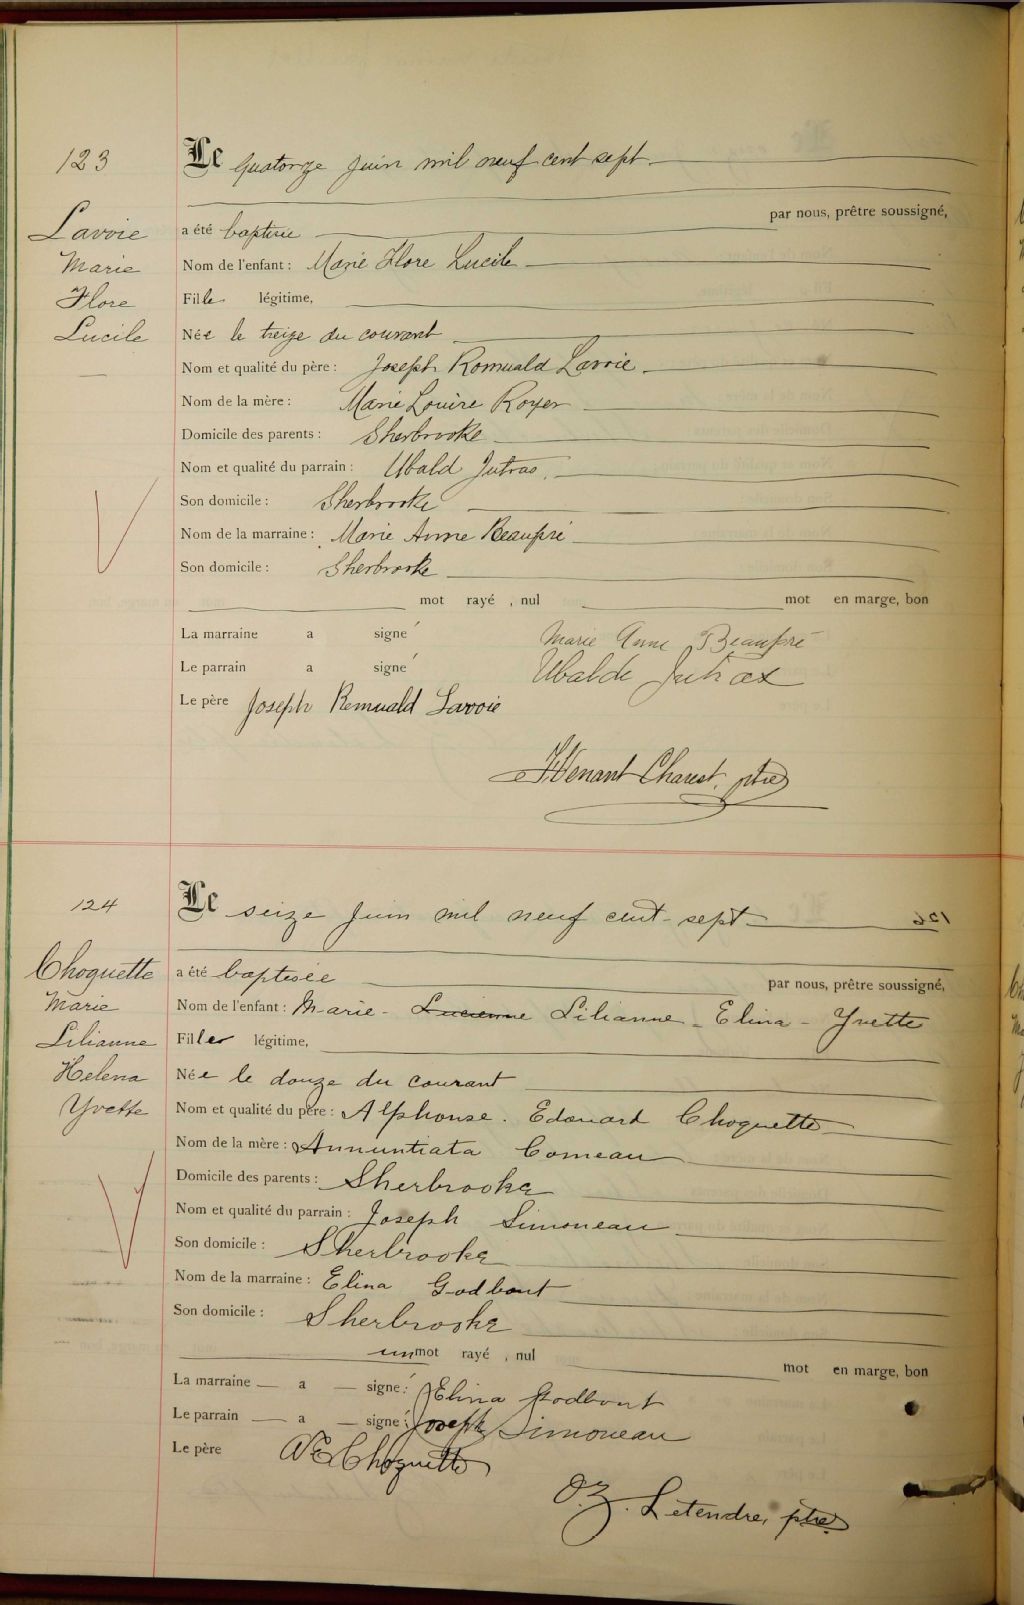 123
Le quatorze juin mil neuf cent sept
par nous, prêtre soussigné,
Lavoie
Marie
Flore
Lucile
a été baptisée
Nom de l'enfant : Marie Flore Lucile
Fille légitime,
Née le treize du courant
Nom et qualité du père : Joseph Romuald Lavoie
Nom de la mère : Marie Louise Royer
Domicile des parents : Sherbrooke
Nom et qualité du parrain : Ubald Jutras
Son domicile : Sherbrooke
Nom de la marraine : Marie Anne Beaupré
Son domicile : Sherbrooke
mot rayé , nul mot en marge, bon
La marraine a signé Marie Anne Beaupré
Le parrain a signé Ubalde Jutras
Le père Joseph Romuald Lavoie
Charest, ptre
124
Le seize juin mil neuf cent sept
Choquette
Marie
Lilianne
Helena
Yvette
a été baptisée par nous, prêtre soussigné,
Nom de l'enfant : Marie - Lucienne Lilianne - Elina - Yvette
Fille légitime,
Née le douze du courant
Nom et qualité du père : Alphonse . Edouard Choquette
Nom de la mère : Annuntiata Comeau
Domicile des parents : Sherbrooke
Nom et qualité du parrain : Joseph Simoneau
Son domicile : Sherbrooke
Nom de la marraine : Elina Godbout
Son domicile : Sherbrooke
un mot rayé , nul mot en marge, bon
La marraine — a — signé : Elina Godbout
Le parrain — a — signé : Joseph Simoneau
Le père A E Choquette
O.Z. Letendre, ptre